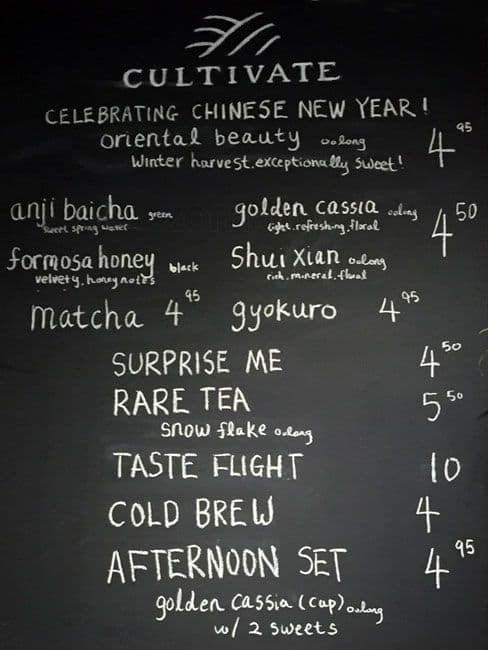 CULTIVATE
CELEBRATING CHINESE NEW YEAR!
oriental beauty oolong 4 95
Winter harvest. exceptionally sweet!
anji baicha green
sweet spring water
golden cassia oolong
light. refreshing. floral
4 50
formosa honey black
velvety. honey notes
Shui Xian oolong
rich. mineral. floral
matcha 4 95
gyokuro 4 95
SURPRISE ME 4 50
RARE TEA 5 50
snow flake oolong
TASTE FLIGHT 10
COLD BREW 4
AFTERNOON SET 4 95
golden cassia (cup) oolong
w/ 2 sweets